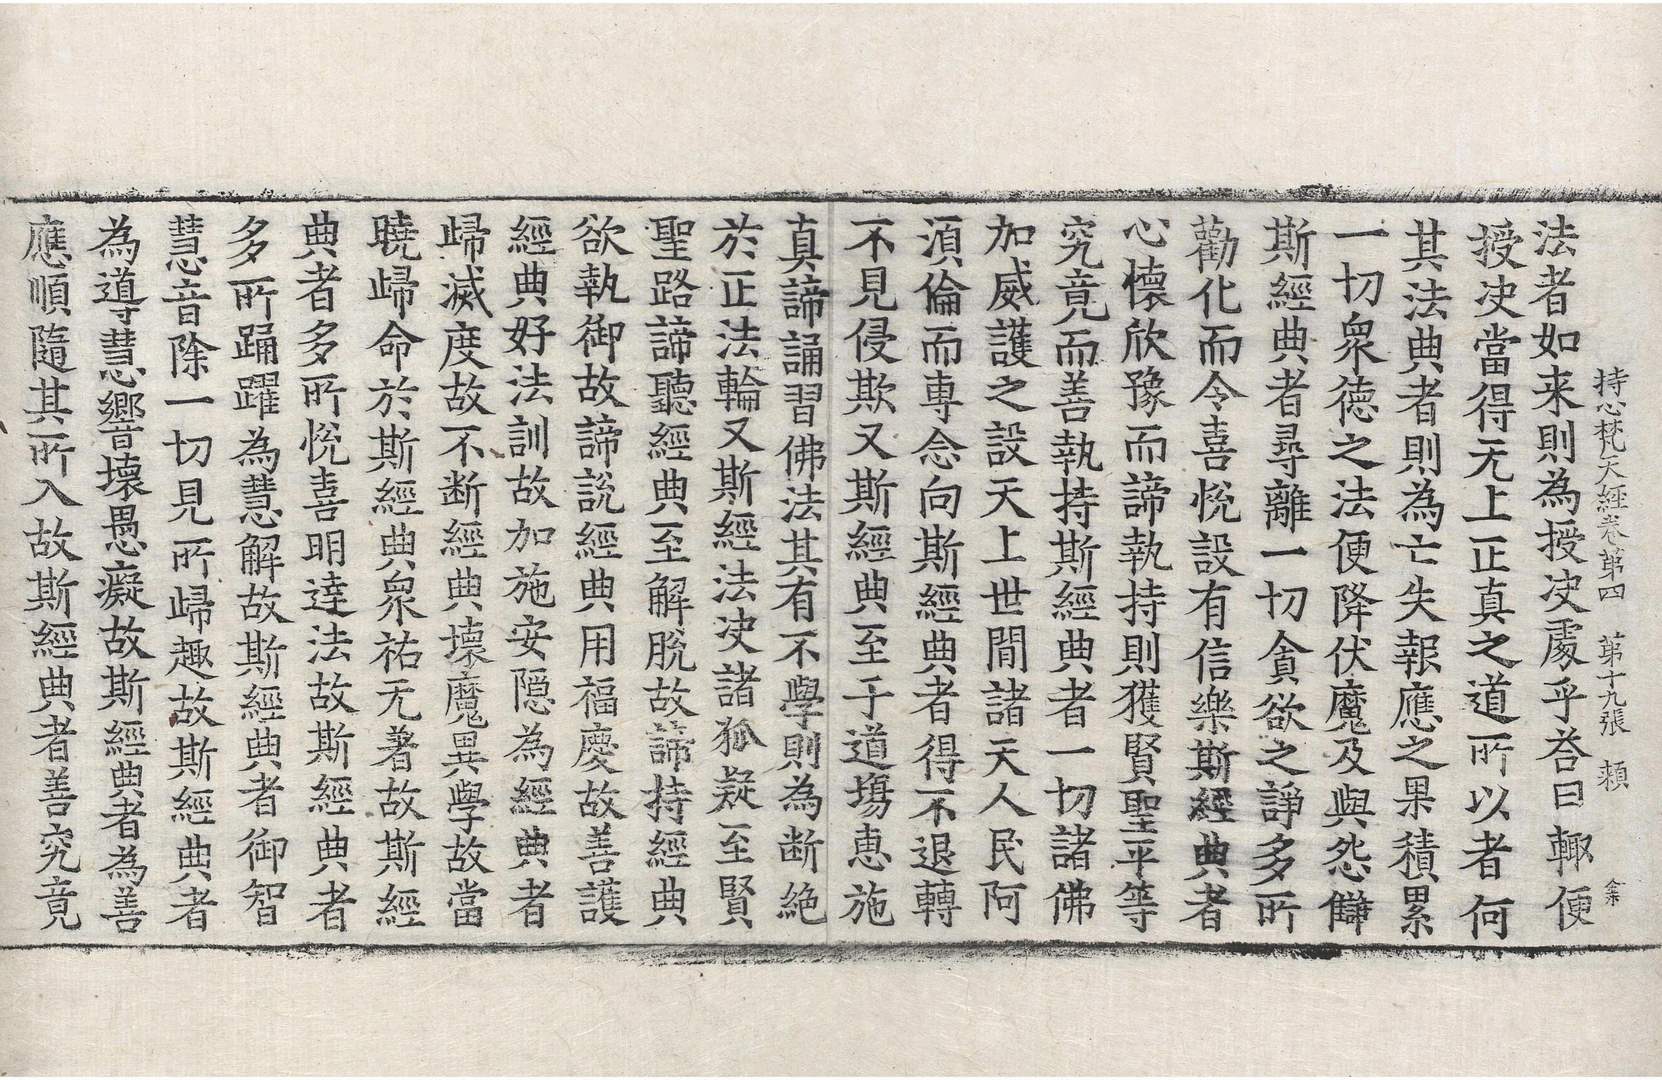 持心梵天經卷第四 第十九張 頼
法者如来則為授决處乎荅曰輙便
授决當得无上正真之道所以者何
其法典者則為亡失報應之果積累
一切衆德之法便降伏魔及與怨讎
斯經典者尋離一切貪欲之諍多所
勸化而令喜悅設有信樂斯經典者
心懷欣豫而諦執持則獲賢聖平等
究竟而善執持斯經典者一切諸佛
加威護之設天上世間諸天人民阿
須倫而專念向斯經典者得不退轉
不見侵欺又斯經典至于道塲惠施
真諦誦習佛法其有不學則為断絶
於正法輪又斯經法决諸狐疑至賢
聖路諦聽經典至解脫故諦持經典
欲執御故諦說經典用福慶故善護
經典好法訓故加施安隠為經典者
歸滅度故不断經典壞魔異學故當
曉歸命於斯經典衆祐无著故斯經
典者多所悅喜明達法故斯經典者
多所踊躍為慧解故斯經典者御智
慧音除一切見所歸趣故斯經典者
為導慧響壞愚癡故斯經典者為善
應順隨其所入故斯經典者善究竟